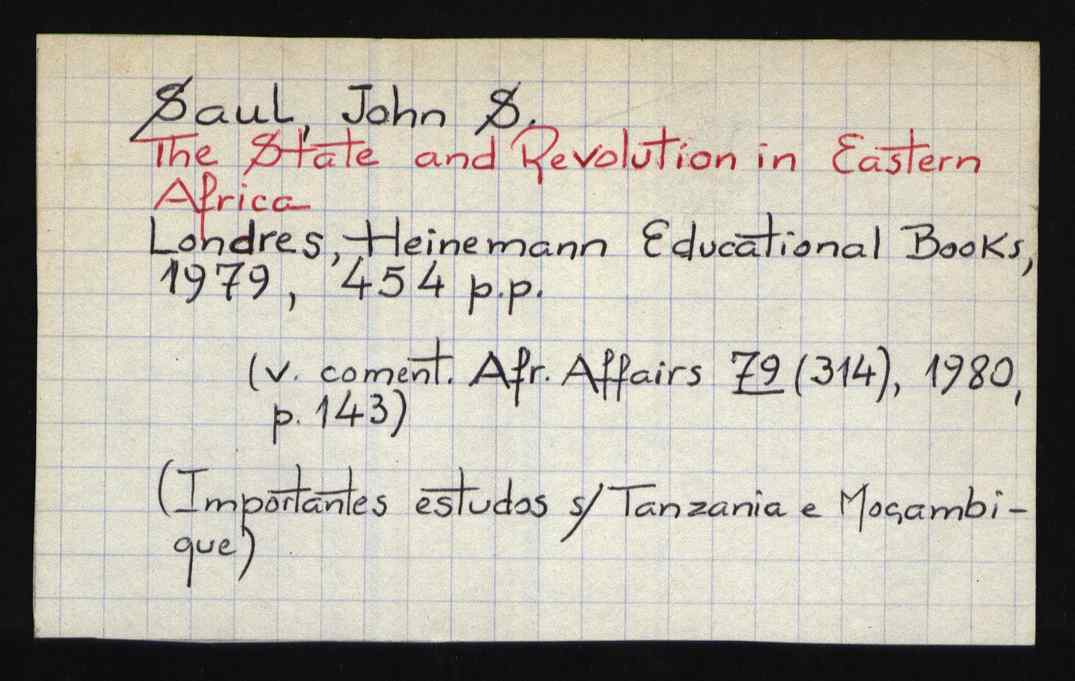 Saul, John S.
The State and Revolution in Eastern
Africa
Londres, Heinemann Educational Books,
1979, 454 p.p.
(v. coment. Afr. Affairs 79 (314), 1980,
p. 143)
(Importantes estudos s/ Tanzania e Moçambi-
que)